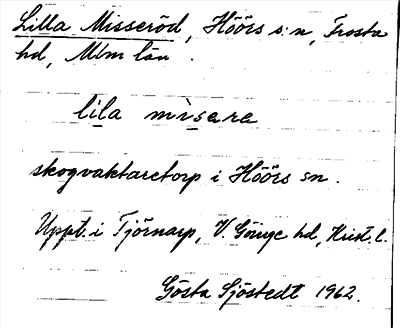 Lilla Misseröd, Höörs s:n, Frosta
hd, Mlm län.
lila misara
skogvaktaretorp i Höörs sn.
Uppt. i Tjörnarp, V. Göinge hd, Krist. l.
Gösta Sjöstedt 1962.